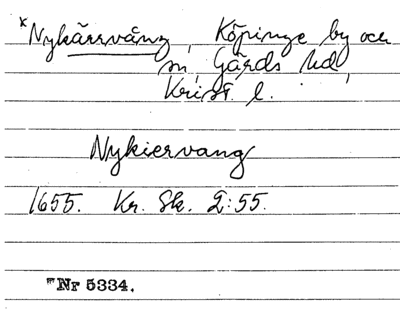 *Nykärrvång, Köpinge by och
sn, Gärds hd,
Krist. l.
Nykiervang
1655. Kr. Sk. 2:55.
Nr 5334.